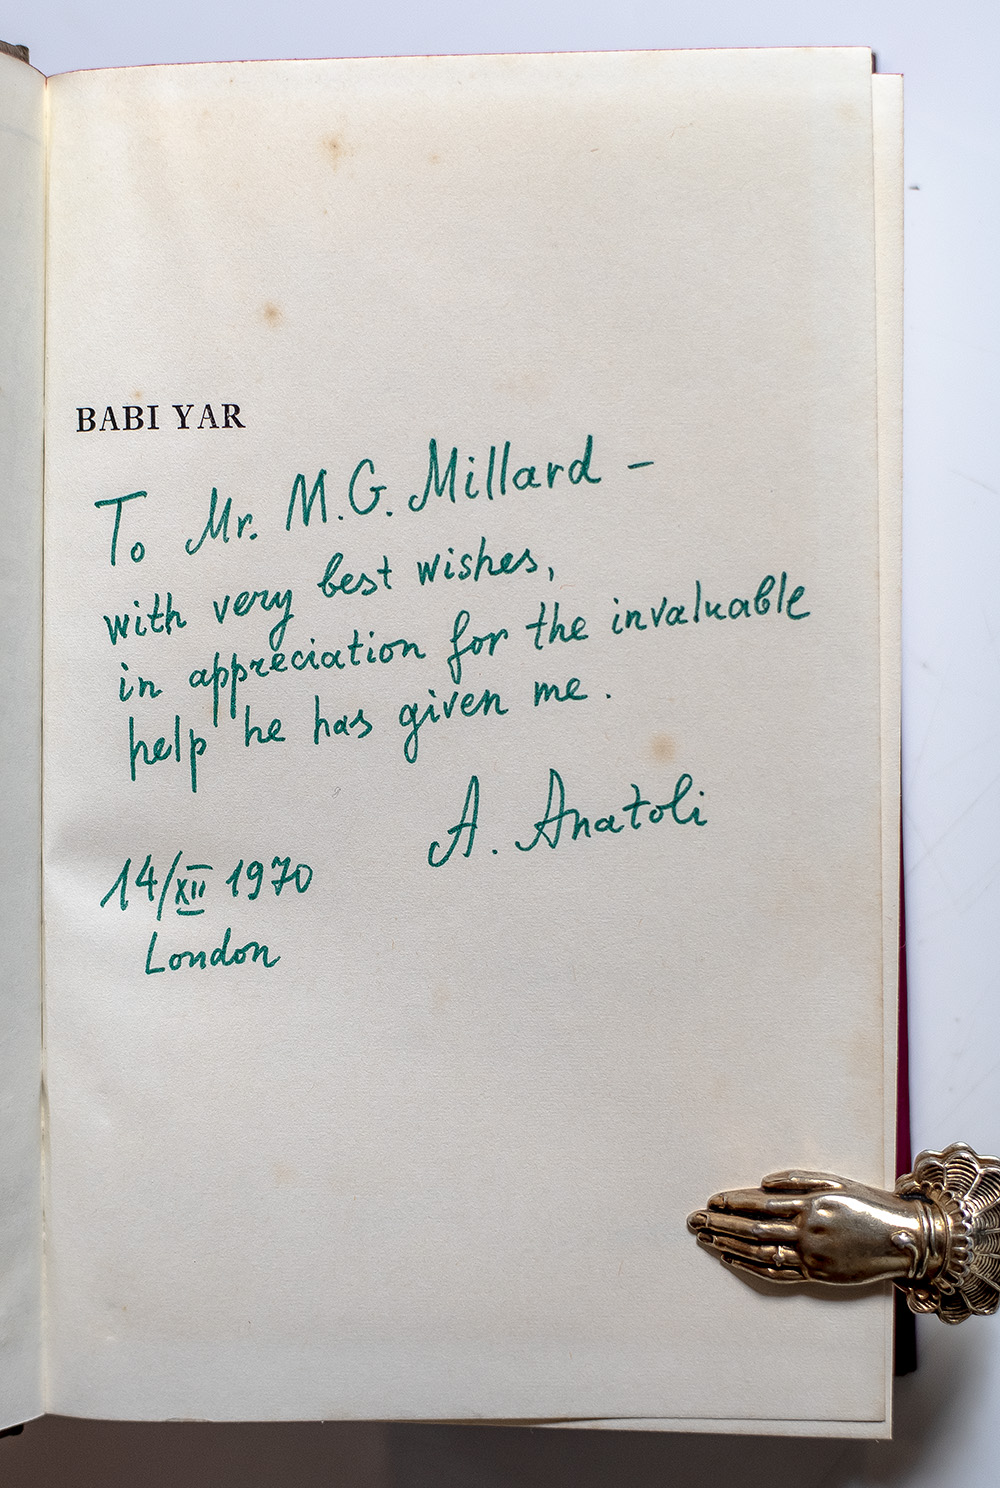 BABI YAR
To Mr. M.G. Millard –
with very best wishes,
in appreciation for the invaluable
help he has given me.
A. Anatoli
14/XII 1970
London